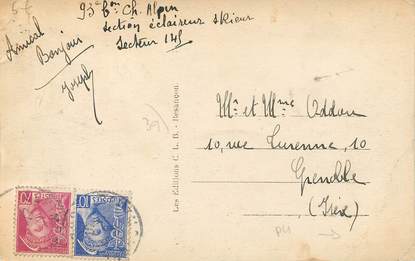 93e Bon Ch. Alpin
section éclaireur skieur
Secteur 145
Amical
Bonjour
Joseph
Les Editions C. L. B. - Besançon
Mr et Mme Oddou
10, rue Turenne, 10
Grenoble
(Isère)